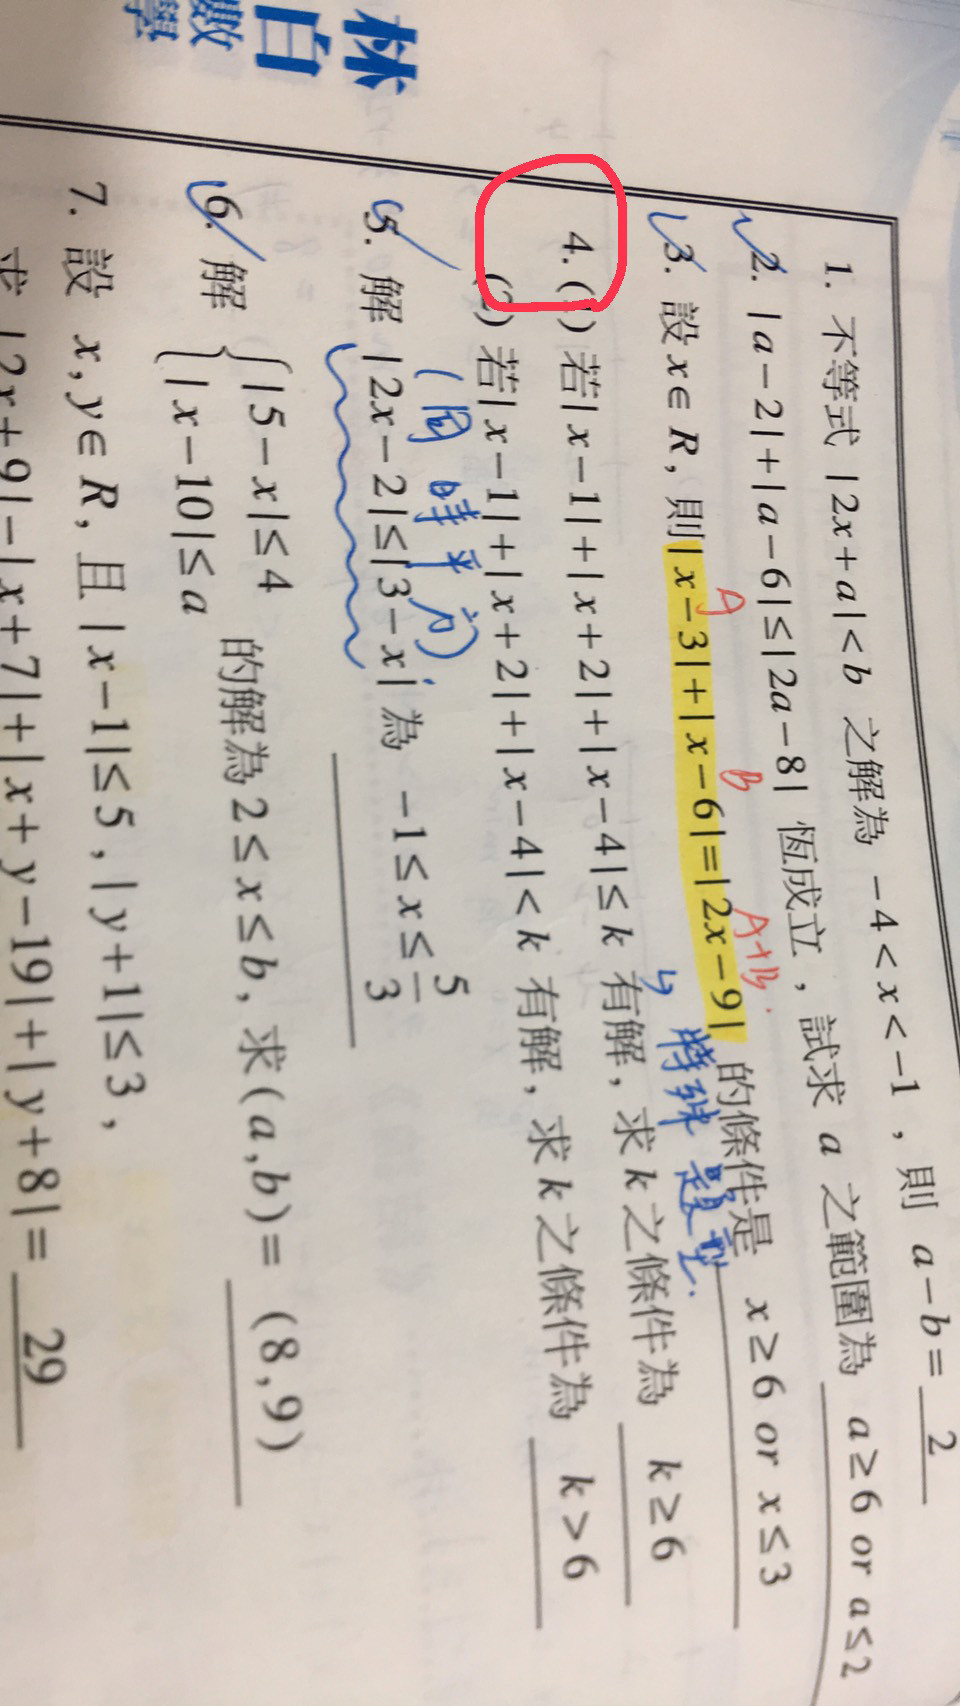 林白
數學
1. 不等式 |2x+a|<b 之解為 -4<x<-1，則 a-b= 2
2. |a-2|+|a-6|≤|2a-8| 恆成立，試求 a 之範圍為 a≥6 or a≤2
A B A+B
3. 設 x∈R, 則 |x-3|+|x-6|=|2x-9| 的條件是 x≥6 or x≤3
↳ 特殊題型.
4. (1) 若 |x-1|+|x+2|+|x-4|≤k 有解, 求 k 之條件為 k≥6
(2) 若 |x-1|+|x+2|+|x-4|<k 有解, 求 k 之條件為 k>6
(同時平方)
5. 解 |2x-2|≤|3-x| 為 -1≤x≤5/3
6. 解 { |5-x|≤4 |x-10|≤a 的解為 2≤x≤b, 求 (a,b)= (8,9)
7. 設 x,y∈R, 且 |x-1|≤5, |y+1|≤3,
求 |2x+9|-|x+7|+|x+y-19|+|y+8|= 29